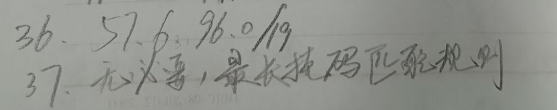 36. 57.6.96.0/19
37. 无必要，最长掩码匹配规则